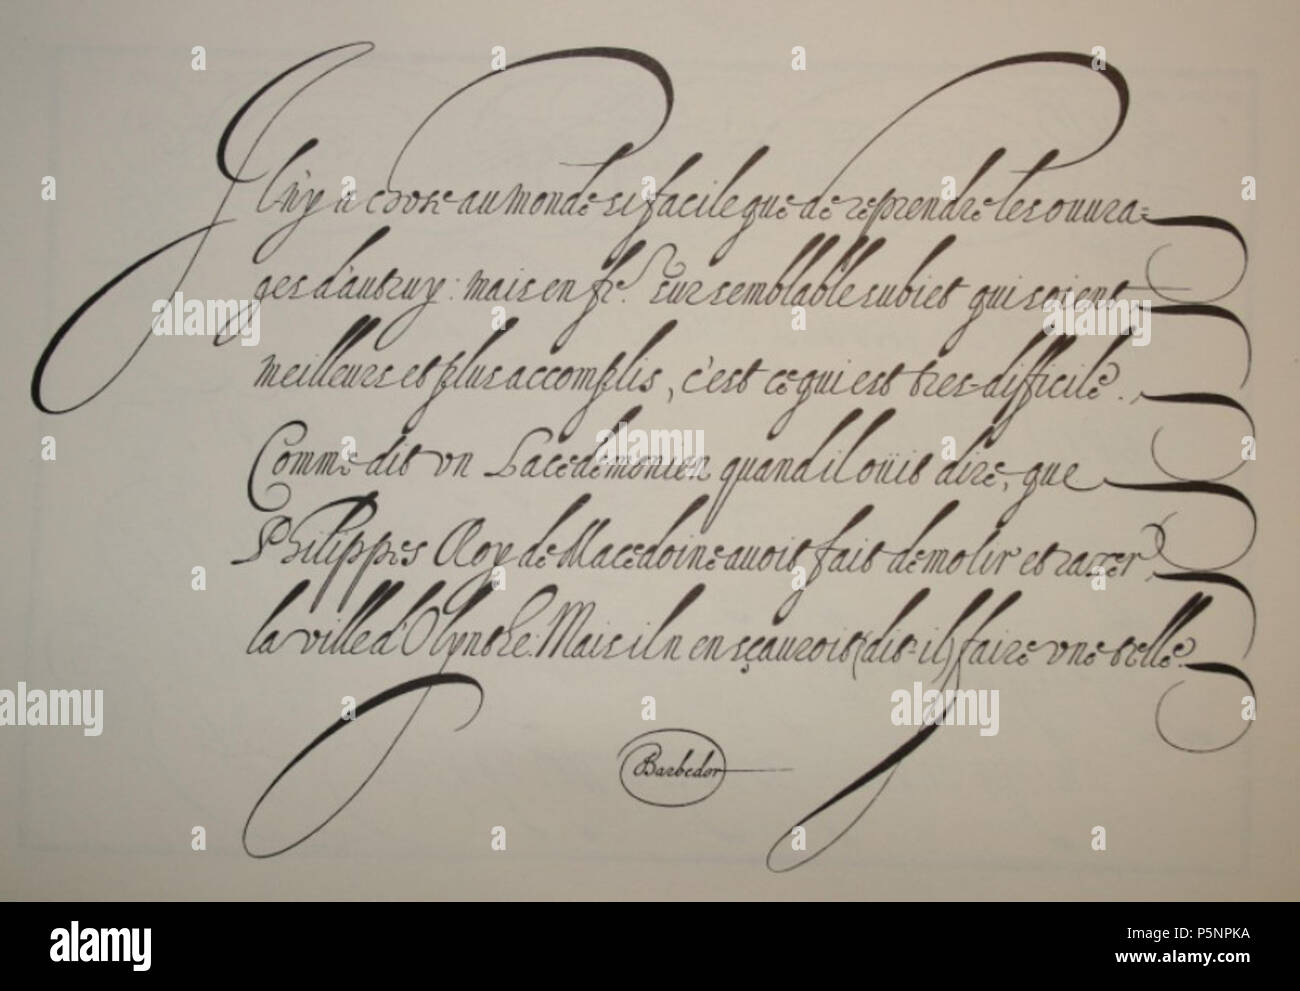 Il n'y a chose au monde si facile que de reprendre les ouura=
ges d'autruy: mais en fre. sur semblable subiet qui soient
meilleurs et plus accomplis, c'est ce qui est tres-difficile.
Comme dit vn Lacedemonien quand il oüit dire, que
Philippes Roy de Macedoine auoit fait demolir et razer,
la ville d'Olynthe: Mais il n en sçauroit (dit-il) faire vne telle.
Barbedor
alamy
Image ID: P5NPKA
www.alamy.com